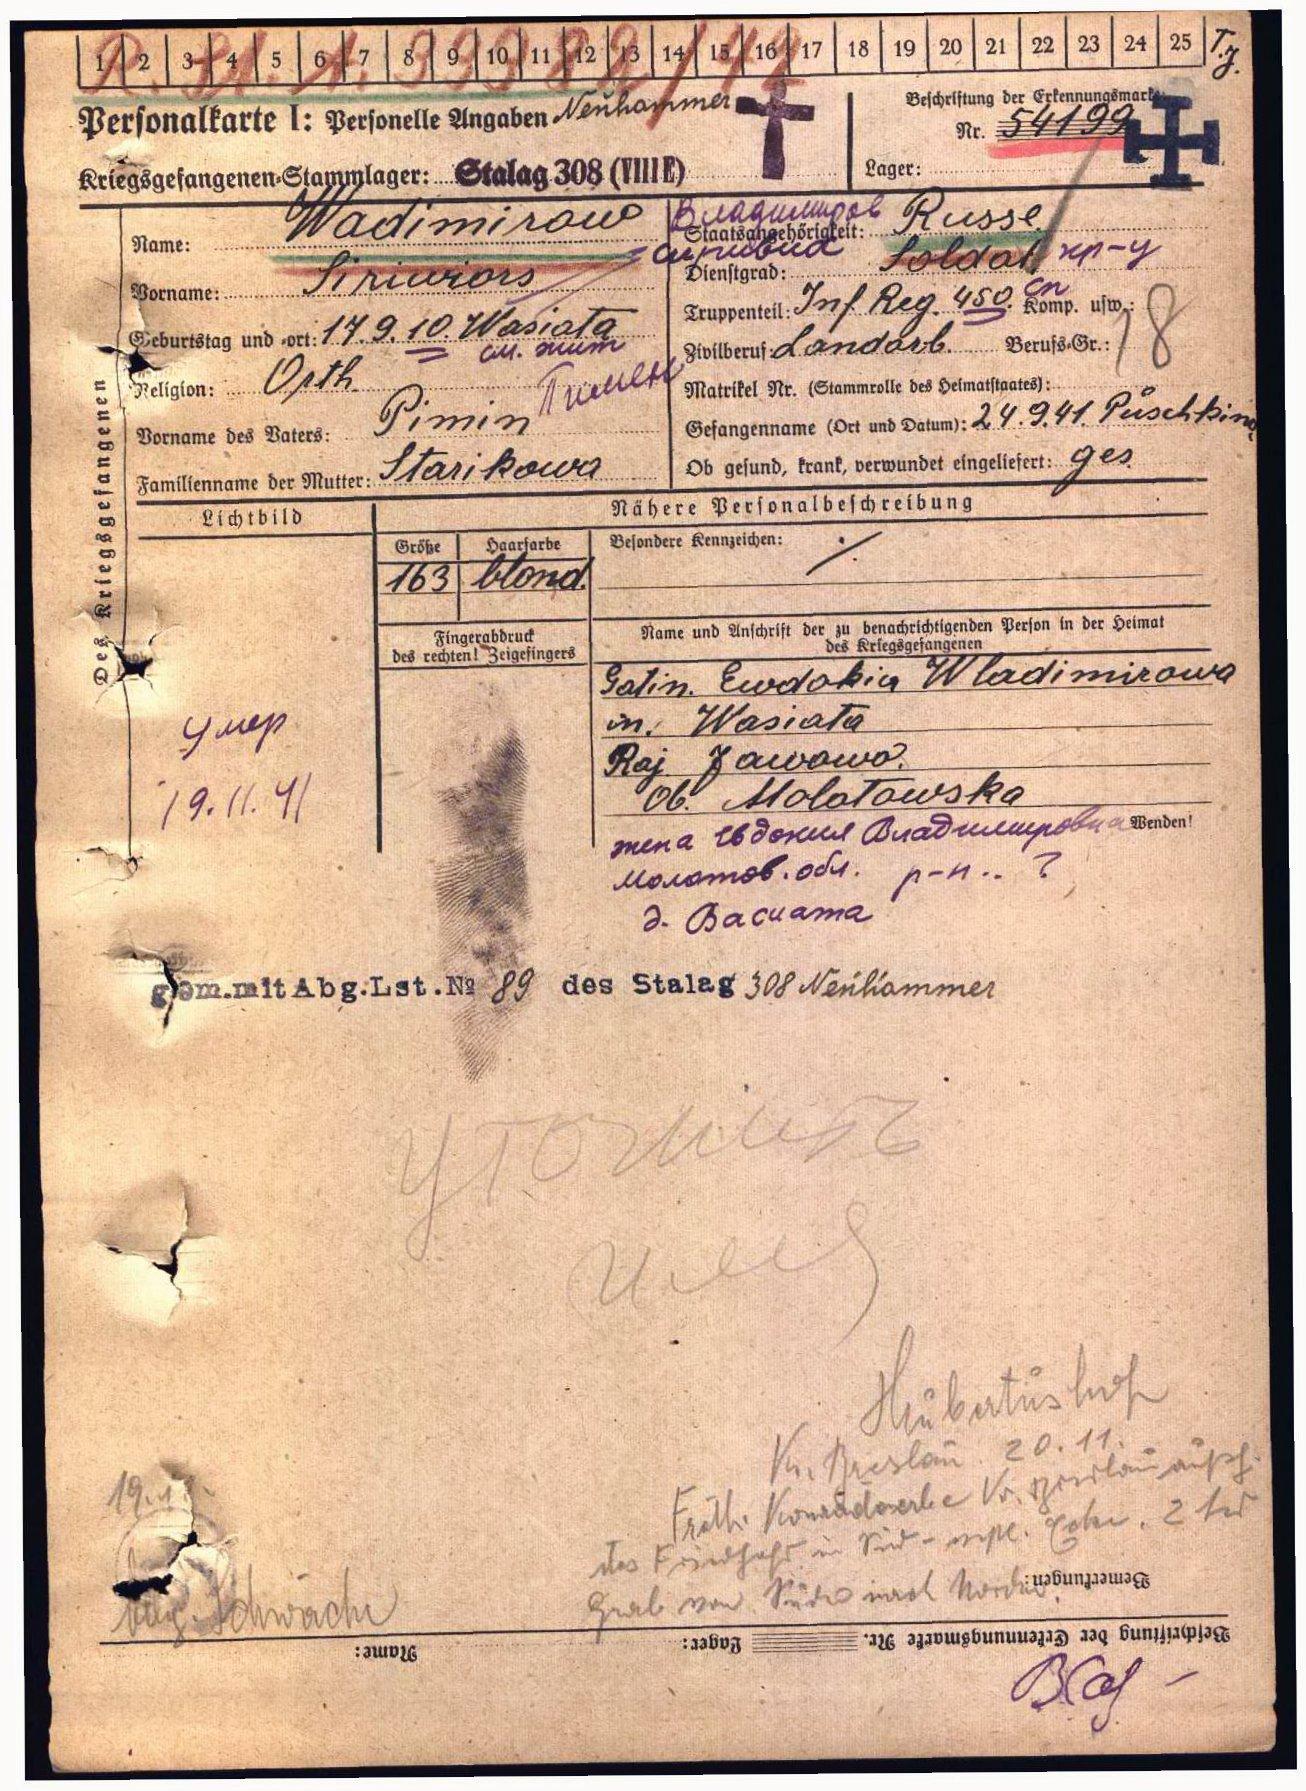 1 2 3 4 5 6 7 8 9 10 11 12 13 14 15 16 17 18 19 20 21 22 23 24 25
Personalkarte I: Personelle Angaben Neuhammer
Beschriftung der Erkennungsmarke
Nr. 54199
Kriegsgefangenen-Stammlager: Stalag 308 (VIII E)
Lager:
Des Kriegsgefangenen
Name: Wadimirow
Vorname: Siriwiors
Geburtstag und -ort: 17.9.10. Wasiata
Religion: Orth
Пимен
Vorname des Vaters: Pimin
Familienname der Mutter: Starikowa
Владимиров
Staatsangehörigkeit: Russe
Dienstgrad: Soldat кр-ц
Truppenteil: Inf. Reg. 450. сп Komp. usw.: 18
Zivilberuf Landarb. Berufs-Gr.:
Matrikel Nr. (Stammrolle des Heimatstaates):
Gefangenname (Ort und Datum): 24.9.41. Puschkino
Ob gesund, krank, verwundet eingeliefert: ges
Lichtbild
Nähere Personalbeschreibung
Größe Haarfarbe Besondere Kennzeichen: ./.
163 blond.
Fingerabdruck
des rechten! Zeigefingers
Name und Anschrift der zu benachrichtigenden Person in der Heimat
des Kriegsgefangenen
Gatin. Ewdokia Wladimirowa
in. Wasiata
Raj Jawowo.
Ob. Molotowska
Wenden!
умер
19.11.41
жена Евдокия Владимировна
Молотов. обл. р-н.. ?
д. Васиата
gem. mit Abg. Lst. № 89 des Stalag 308 Neuhammer
уточнить
Hubertushof
Kr. Breslau. 20.11.
Schwäche
Bemerkungen:
Beschriftung der Erkennungsmarke Nr. Lager: Name: